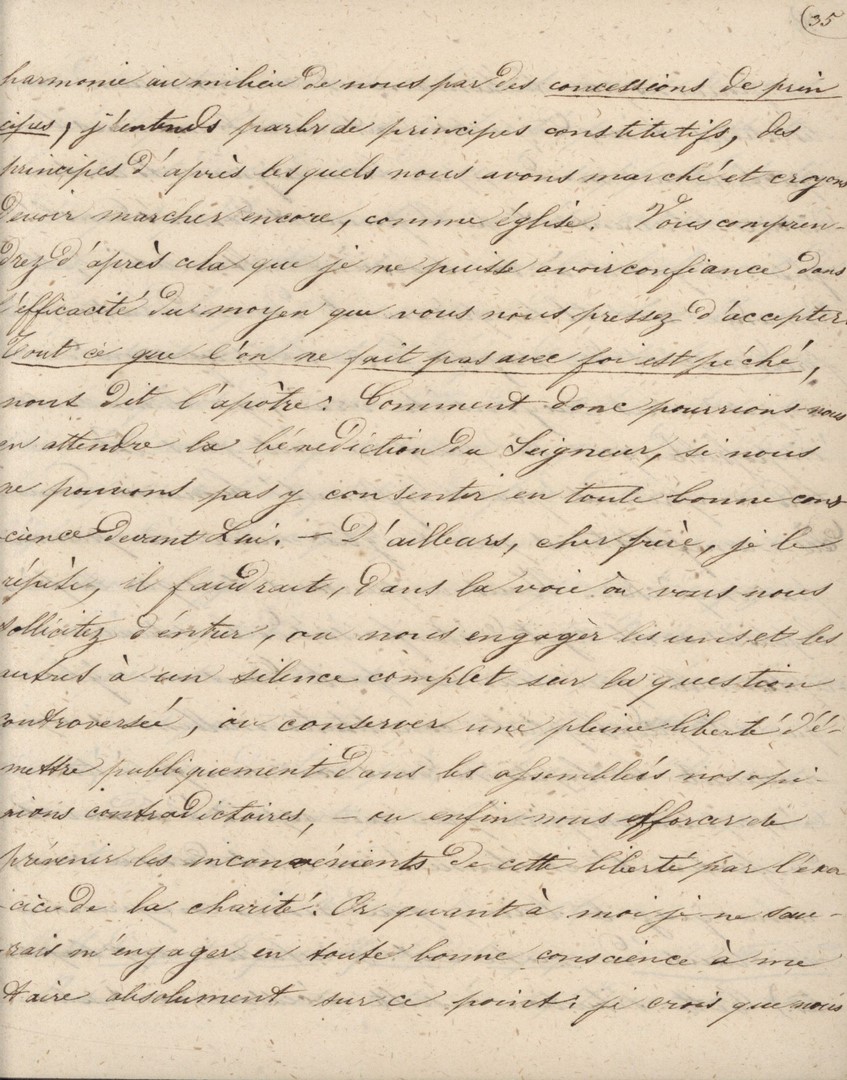 (35
harmonie au milieu de nous par des concessions de prin
cipes, j'entends parler de principes constitutifs, des
principes d'après lesquels nous avons marché et croyons
devoir marcher encore, comme église. Vous compren-
drez d'après cela que je ne puisse avoir confiance dans
l'efficacité du moyen que vous nous pressez d'accepter.
Tout ce que l'on ne fait pas avec foi est péché,
nous dit l'apôtre: Comment donc pourrions-nous
en attendre la bénédiction du Seigneur, si nous
ne pouvons pas y consentir en toute bonne cons
cience devant Lui. — D'ailleurs, cher frère, je le
répète, il faudrait, dans la voie où vous nous
sollicitez d'entrer, ou nous engager les uns et les
autres à un silence complet sur la question
controversée, ou conserver une pleine liberté d'é-
mettre publiquement dans les assemblées nos opi-
nions contradictoires, — ou enfin nous efforcer de
prévenir les inconvénients de cette liberté par l'exer
cice de la charité. Or quant à moi je ne sau-
rais m'engager en toute bonne conscience à me
taire absolument sur ce point: je crois que nous